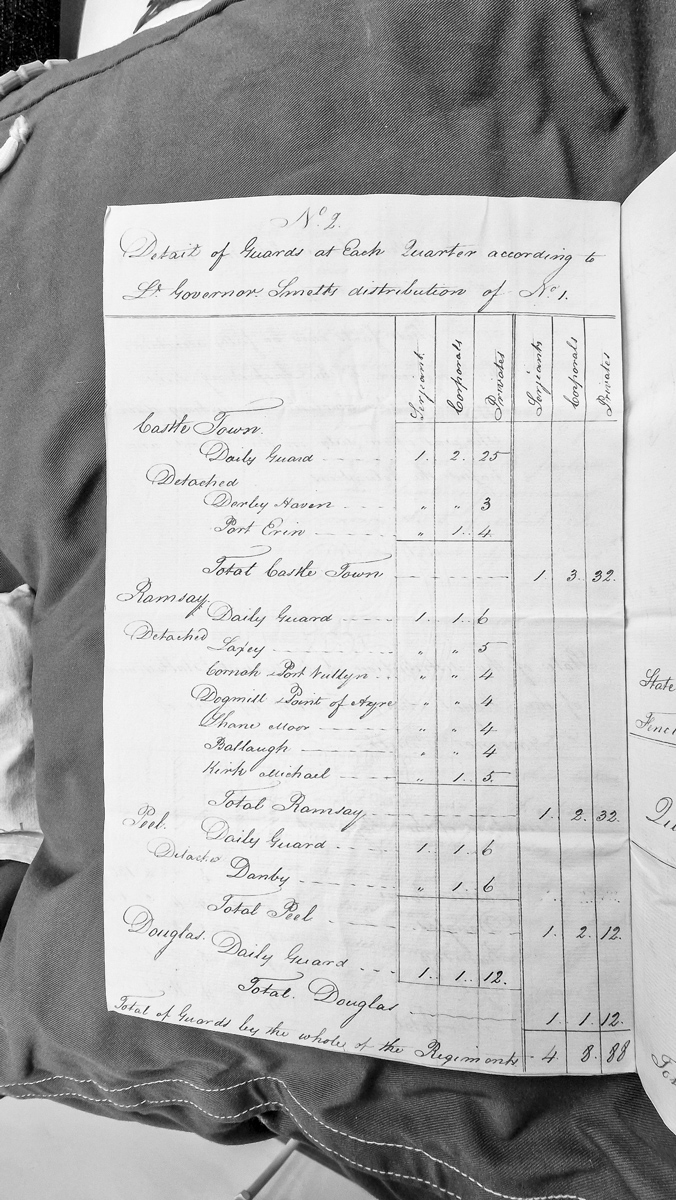 No. 2.
Detail of Guards at Each Quarter according to
Lt. Governor Smelts distribution of No. 1.
Serjeant, Corporals Privates Serjeants Corporals Privates
Castle Town.
Daily Guard 1. 2. 25
Detached
Derby Haven " " 3
Port Erin " 1. 4.
Total Castle Town 1. 3. 32.
Ramsay,
Daily Guard 1. 1. 6
Detached Laxey " " 5
Cornah & Port Vullyn " " 4
Dogmill & Point of Ayre " " 4
Shane Moor " " 4
Ballaugh " " 4
Kirk Michael " 1. 5.
Total Ramsay 1. 2. 32.
Peel. Daily Guard 1. 1. 6
Detached Danby " 1. 6
Total Peel 1. 2. 12.
Douglas. Daily Guard 1. 1. 12.
Total. Douglas 1. 1. 12.
Total of Guards by the whole of the Regiment 4. 8. 88
State
Fenci